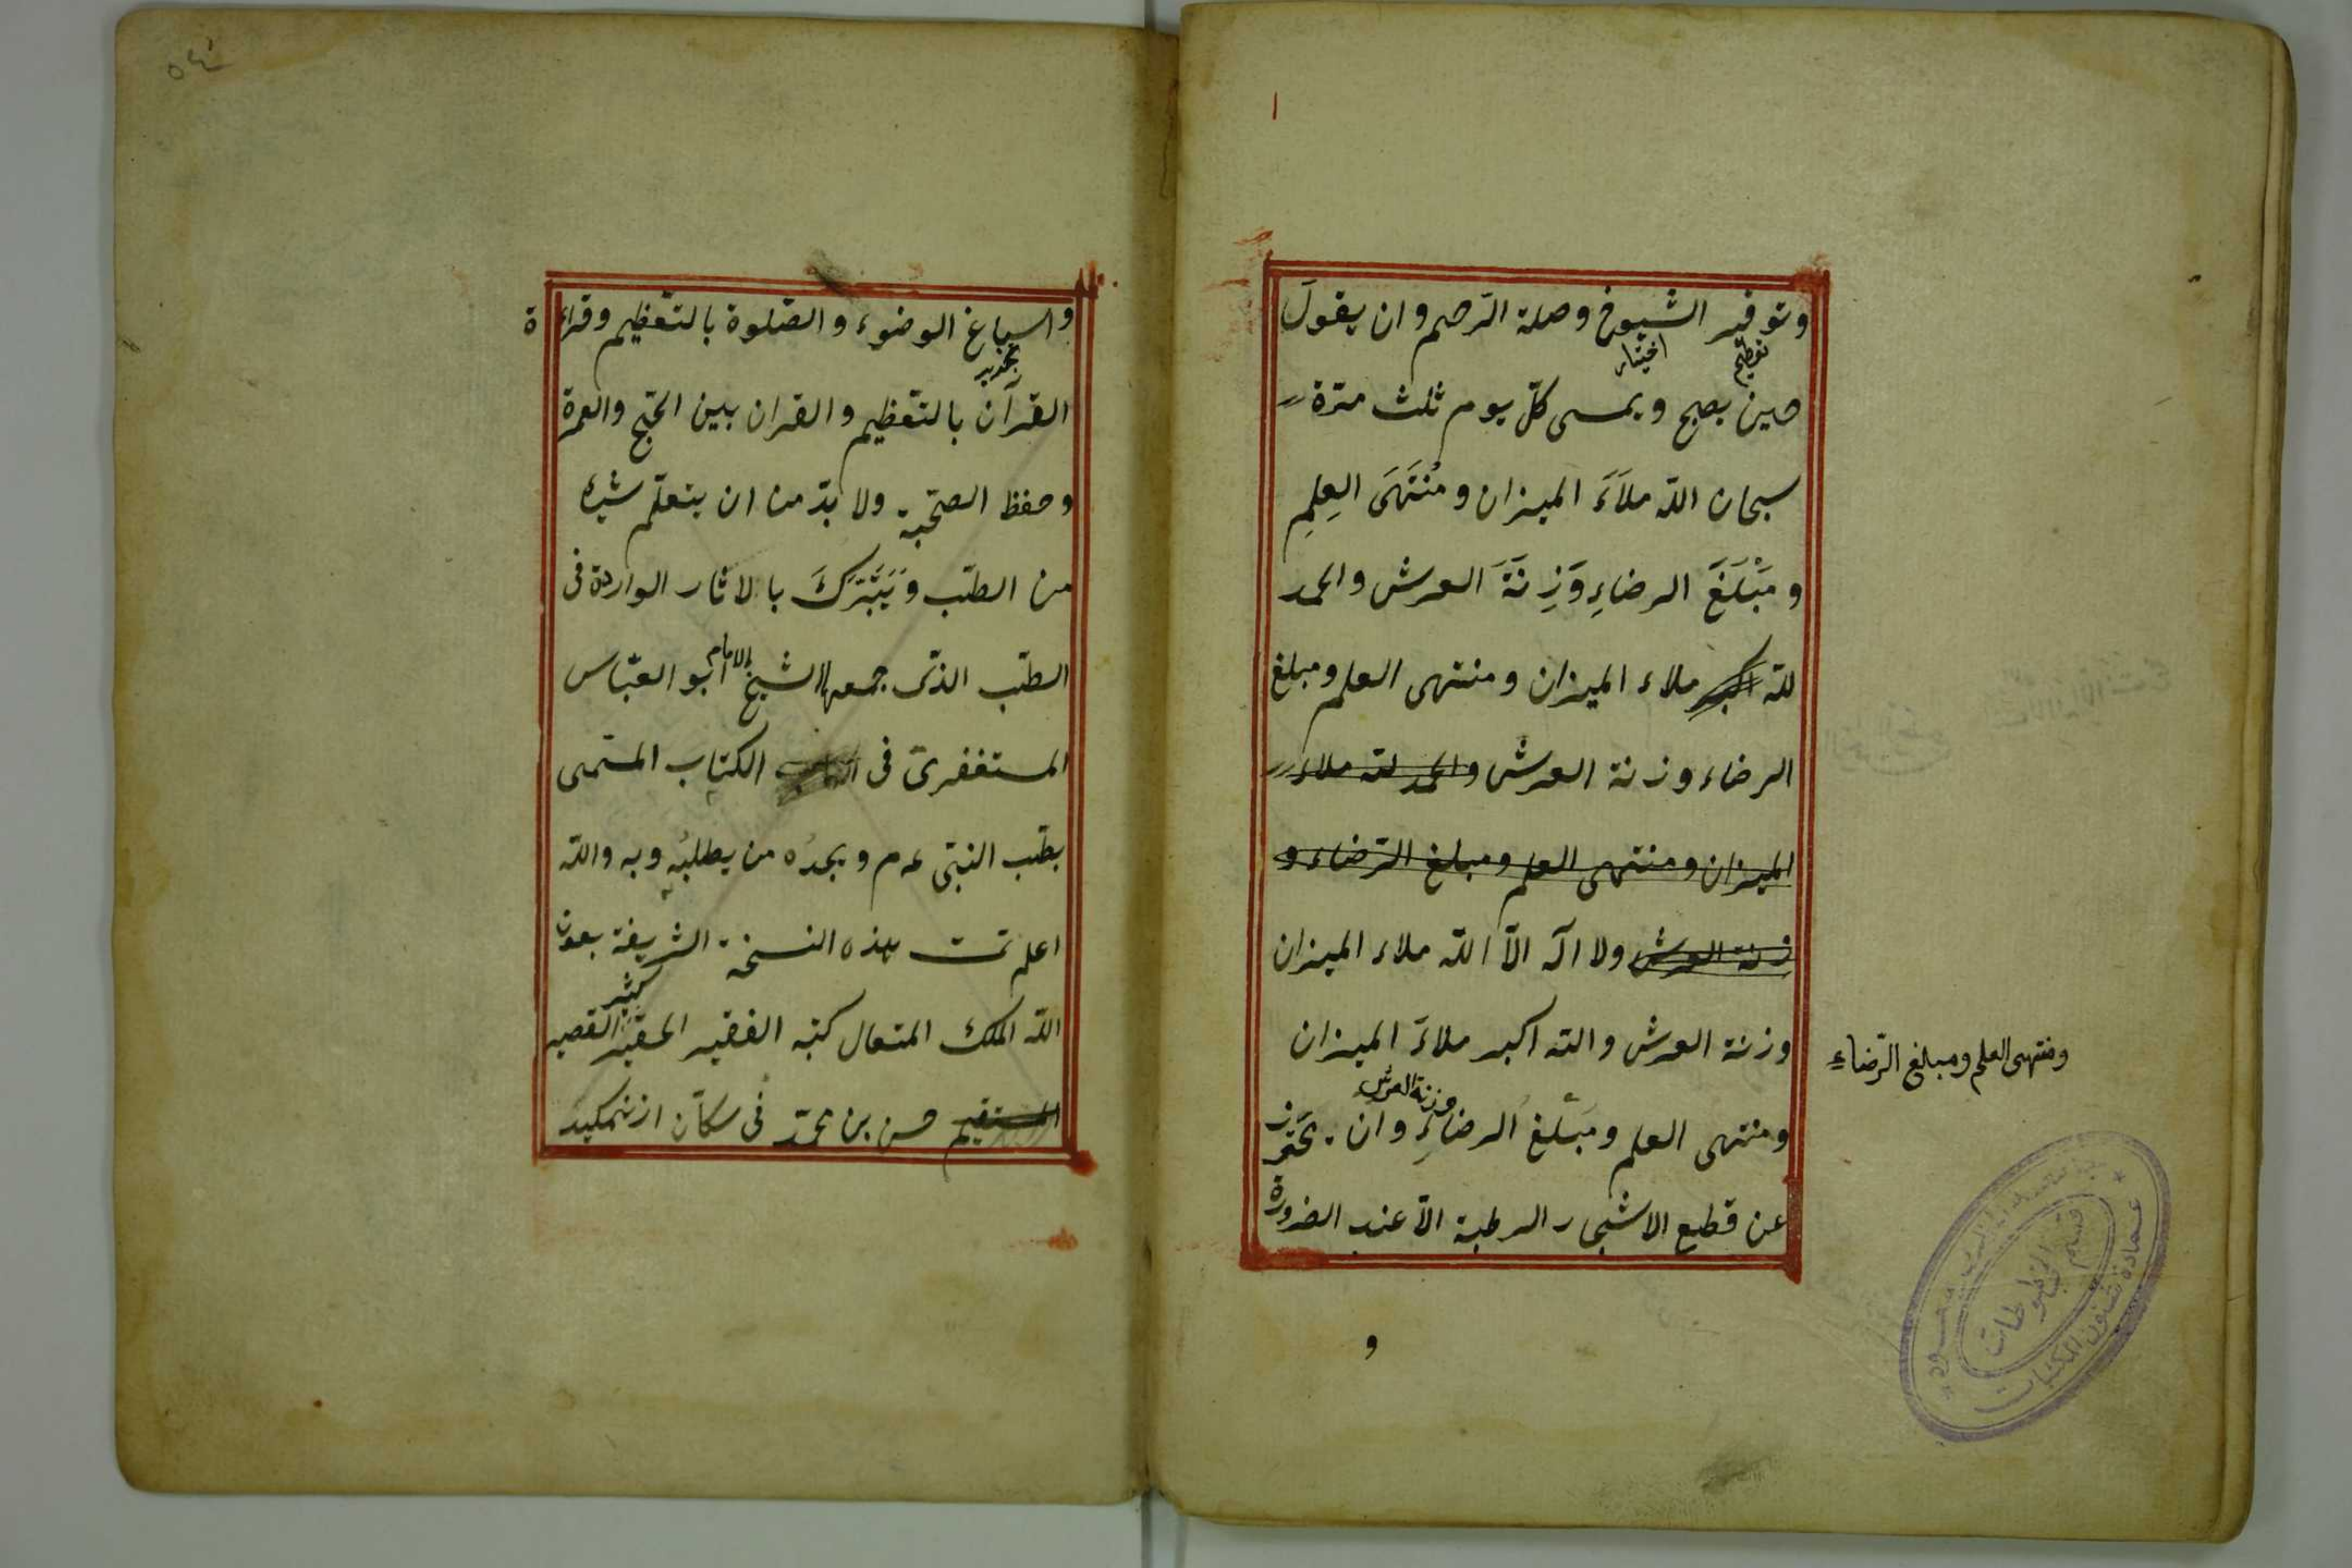 وتوقير الشيوخ وصلة الرّحم وان يقولَ
تعظيم
اختيار
حين يصبح ويمسى كلّ يوم ثلث مرّة
سبحان اللّه ملاَءَ الميزان ومُنْتَهَى العِلمِ
ومَبْلَغَ الرضاءِ وَزِنَةَ العرش والحمد
للّه اكبر ملاء الميزان ومنتهى العلم ومبلغ
الرضاء وزنة العرش والحمد للّه ملاء
الميزان ومنتهى العلم ومبلغ الرّضاء و
زنة العرش ولا اله الّا اللّه ملاء الميزان
ومنتهى العلم ومبلغ الرّضاء
وزنة العرش واللّه اكبر ملاءَ الميزان
وزنة العرش
ومنتهى العلم ومَبْلغ الرضاءِ وان يحترز
عن قطع الاشجار الرطبة الّا عند الضرورة
و
قسم المخطوطات
عمادة شئون المكتبات
واسباغ الوضوء والصّلوة بالتّعظيم وقراءة
القرآن بالتّعظيم والقران بين الحجّ والعمرة
وحفظ الصحّة ولا بدّ من ان يتعلّم شيئا
من الطبّ وَيَتَبَّرَكَ بالاثار الواردة فى
الطبّ الذّى جمعها الشيخ الامام ابو العبّاس
المستغفرىّ فى الكتاب المسّمى
بطبّ النبّى عم م ويجدُه من يطلبُه وبه واللّه
اعلم تمت هذه النسخة الشريفة بعون
اللّه الملك المتعال كتبه الفقير الحقير كثير القصير
المستقيم حسن بن محمّد فى سكّان ازنمكيد